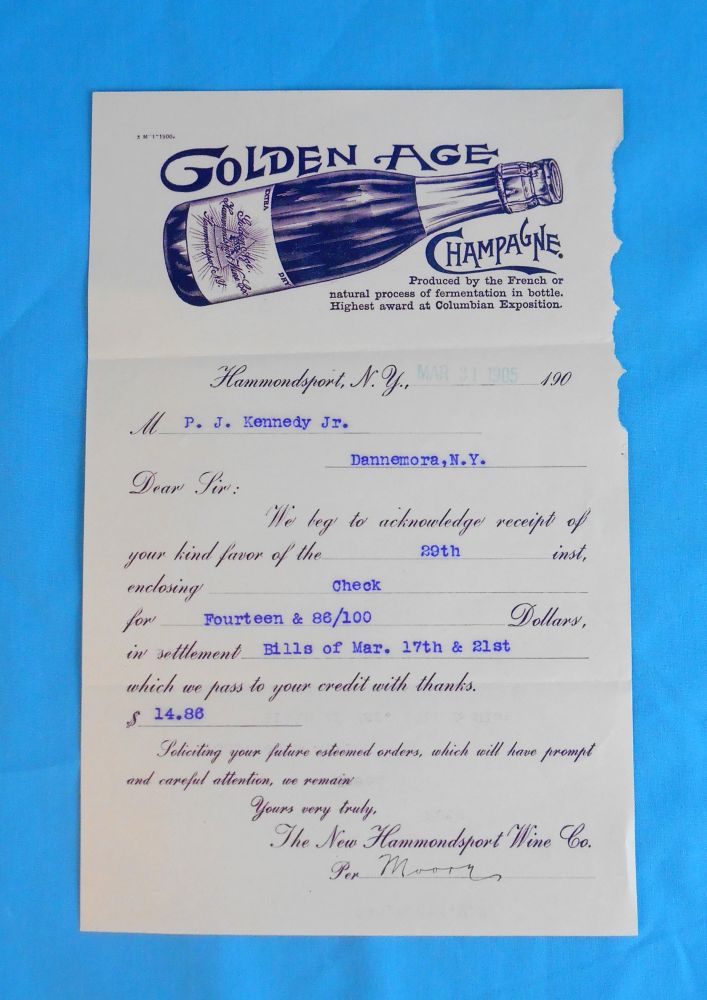 GOLDEN AGE
EXTRA
DRY
Golden Age
Hammondsport Wine Co.
Hammondsport N.Y.
CHAMPAGNE.
Produced by the French or
natural process of fermentation in bottle.
Highest award at Columbian Exposition.
Hammondsport, N. Y., MAR 31 1905 190
M P. J. Kennedy Jr.
Dannemora,N.Y.
Dear Sir:
We beg to acknowledge receipt of
your kind favor of the 29th inst,
enclosing Check
for Fourteen & 86/100 Dollars,
in settlement Bills of Mar. 17th & 21st
which we pass to your credit with thanks.
$ 14.86
Soliciting your future esteemed orders, which will have prompt
and careful attention, we remain
Yours very truly,
The New Hammondsport Wine Co.
Per